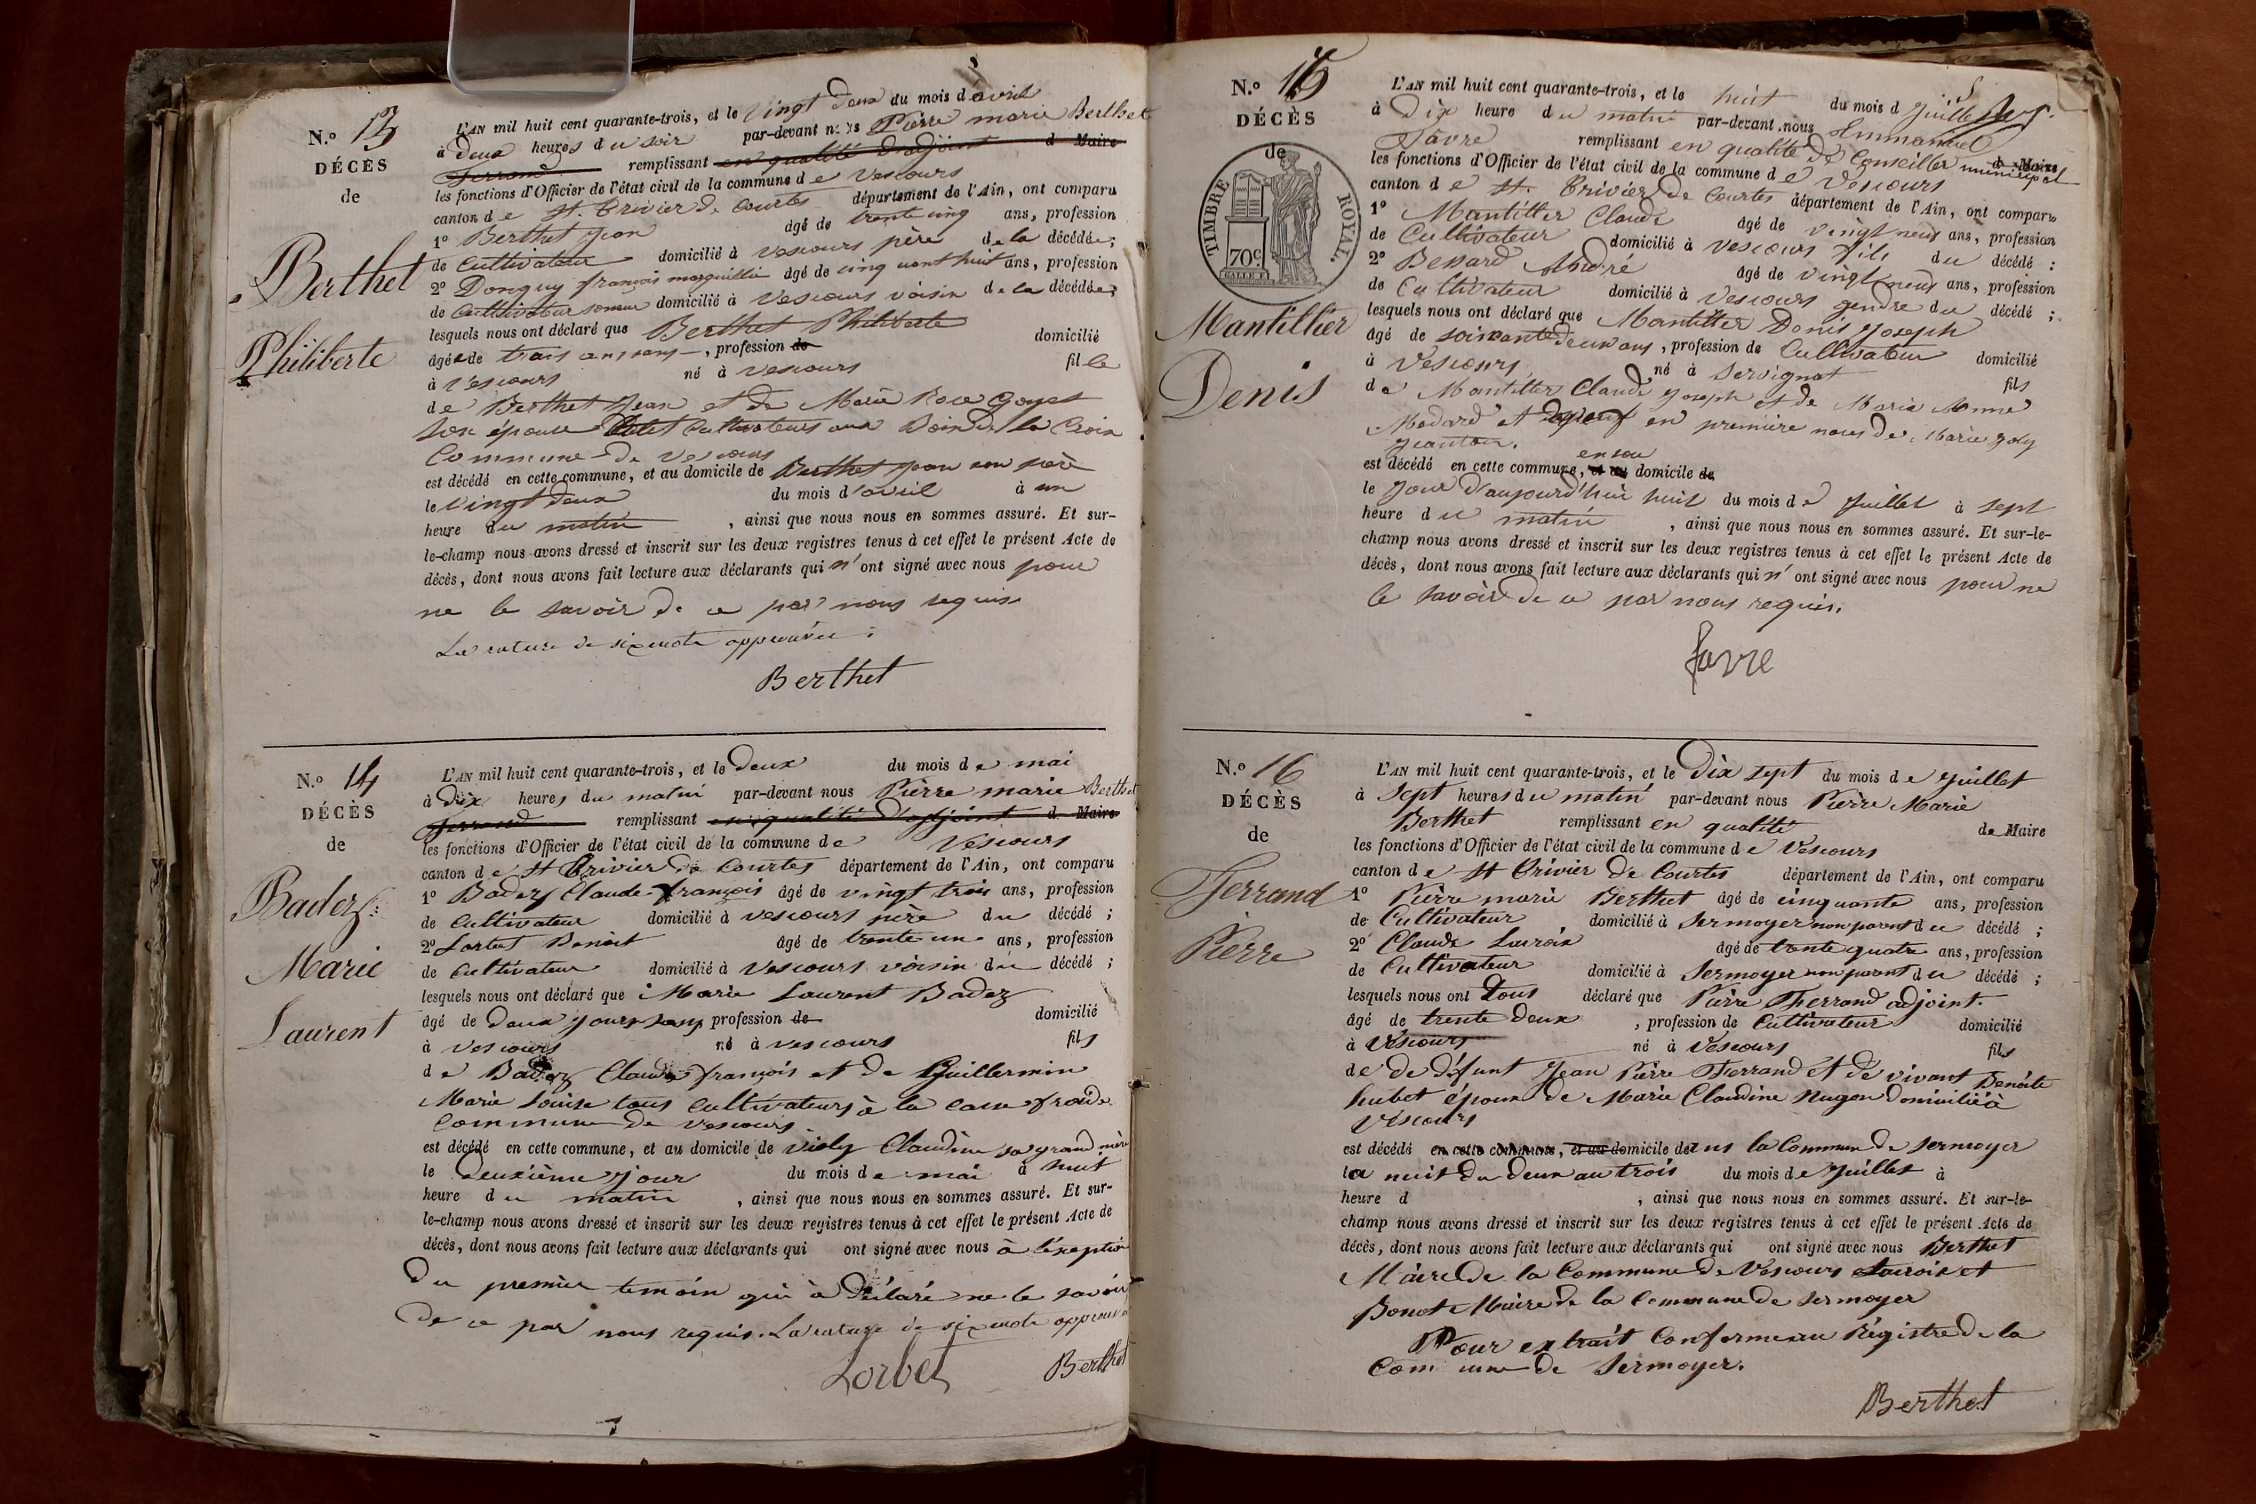 N.o 13
DÉCÈS
de
Berthet
Philiberte
L'AN mil huit cent quarante-trois, et le vingt deux du mois d'avril
à deux heures du soir par-devant nous Pierre marie Berthet
Ferrand remplissant en qualité d'adjoint d Maire
les fonctions d'Officier de l'état civil de la commune de Vescours
canton de St. Trivier de Courtes département de l'Ain, ont comparu
1o Berthet Jean âgé de trente cinq ans, profession
de Cultivateur domicilié à Vescours père de la décédée;
2o Donguy françois marguillier âgé de cinquant huit ans, profession
de Cultivateur domicilié à Vescours voisin de la décédée;
lesquels nous ont déclaré que Berthet Philiberte
âgée de trois ans sans, profession de domicilié
à Vescours né à Vescours fille
de Berthet Jean et de Marie Rose Goyet
son épouse Cultivateurs aux Bois de la Croix
Commune de Vescours
est décédé en cette commune, et au domicile de Berthet Jean son père
le Vingt deux du mois d'avril à un
heure du matin, ainsi que nous nous en sommes assuré. Et sur-
le-champ nous avons dressé et inscrit sur les deux registres tenus à cet effet le présent Acte de
décès, dont nous avons fait lecture aux déclarants qui n'ont signé avec nous pour
ne le savoir de ce par nous requis
La rature de six mots approuvée.
Berthet
N.o 14
DÉCÈS
de
Badez
Marie
Laurent
L'AN mil huit cent quarante-trois, et le deux du mois de mai
à dix heures du matin par-devant nous Pierre marie Berthet
Ferrand remplissant en qualité d'adjoint d Maire
les fonctions d'Officier de l'état civil de la commune de Vescours
canton de St Trivier de Courtes département de l'Ain, ont comparu
1o Badez Claude françois âgé de vingt trois ans, profession
de Cultivateur domicilié à Vescours père du décédé;
2o Lorbet Benoit âgé de trente un ans, profession
de Cultivateur domicilié à Vescours voisin du décédé;
lesquels nous ont déclaré que Marie Laurent Badez
âgé de deux jours sans profession de domicilié
à Vescours né à Vescours fils
de Badez Claude françois et de Guillermin
Marie Louise tous cultivateurs à la case froide
Commune de Vescours
est décédé en cette commune, et au domicile de Viely Claudine sa grand mère
le deuxième jour du mois de mai à huit
heure du matin, ainsi que nous nous en sommes assuré. Et sur-
le-champ nous avons dressé et inscrit sur les deux registres tenus à cet effet le présent Acte de
décès, dont nous avons fait lecture aux déclarants qui ont signé avec nous à l'éxeption
du premier temoin qui à déclaré ne le savoir
de ce par nous requis. La rature de six mots approuvée
Lorbet Berthet
N.o 15
DÉCÈS
de
TIMBRE ROYAL.
70c
Mantillier
Denis
L'AN mil huit cent quarante-trois, et le huit du mois d Juillet
à Dix heure du matin par-devant nous Emmanuel
Favre remplissant en qualité de Conseiller municipal d Maire
les fonctions d'Officier de l'état civil de la commune de Vescours
canton de St. Trivier de Courtes département de l'Ain, ont comparu
1o Mantiller Claude âgé de vingt neuf ans, profession
de Cultivateur domicilié à Vescours fils du décédé:
2o Bessard André âgé de vingt neuf ans, profession
de Cultivateur domicilié à Vescours gendre du décédé;
lesquels nous ont déclaré que Mantiller Denis Joseph
âgé de soixante deux ans, profession de Cultivateur domicilié
à Vescours, né à Servignat fils
de Mantiller Claude Joseph et de Marie Anne
Modard et époux en première noces de Marie Joly
Jeanton.
est décédé en cette commune, et au en son domicile de
le Jour d'aujourd'hui huit du mois de Juillet à sept
heure du matin, ainsi que nous nous en sommes assuré. Et sur-le-
champ nous avons dressé et inscrit sur les deux registres tenus à cet effet le présent Acte de
décès, dont nous avons fait lecture aux déclarants qui n'ont signé avec nous pour ne
le savoir de ce par nous requis.
favre
N.o 16
DÉCÈS
de
Ferrand
Pierre
L'AN mil huit cent quarante-trois, et le Dix sept du mois de Juillet
à Sept heures du matin par-devant nous Pierre Marie
Berthet remplissant en qualité de Maire
les fonctions d'Officier de l'état civil de la commune de Vescours
canton de St Trivier de Courtes département de l'Ain, ont comparu
1o Pierre marie Berthet âgé de cinquante ans, profession
de Cultivateur domicilié à Sermoyer non parent du décédé;
2o Claude Lacroix âgé de trente quatre ans, profession
de Cultivateur domicilié à Sermoyer non parent du décédé;
lesquels nous ont tous déclaré que Pierre Ferrand adjoint.
âgé de trente deux, profession de Cultivateur domicilié
à Vescours né à Vescours fils
de de défunt Jean Pierre Ferrand et de vivant Benoite
hubet époux de Marie Claudine Nugon domicilié à
Vescours
est décédé en cette commune, et au domicile dans la Commune de Sermoyer
la nuit du deux au trois du mois de Juillet à
heure d , ainsi que nous nous en sommes assuré. Et sur-le-
champ nous avons dressé et inscrit sur les deux registres tenus à cet effet le présent Acte de
décès, dont nous avons fait lecture aux déclarants qui ont signé avec nous Berthet
Maire de la Commune de Vescours Lacroix et
Bonot Maire de la Commune de Sermoyer
Pour extrait Conforme au Régistre de la
Commune de Sermoyer.
Berthet